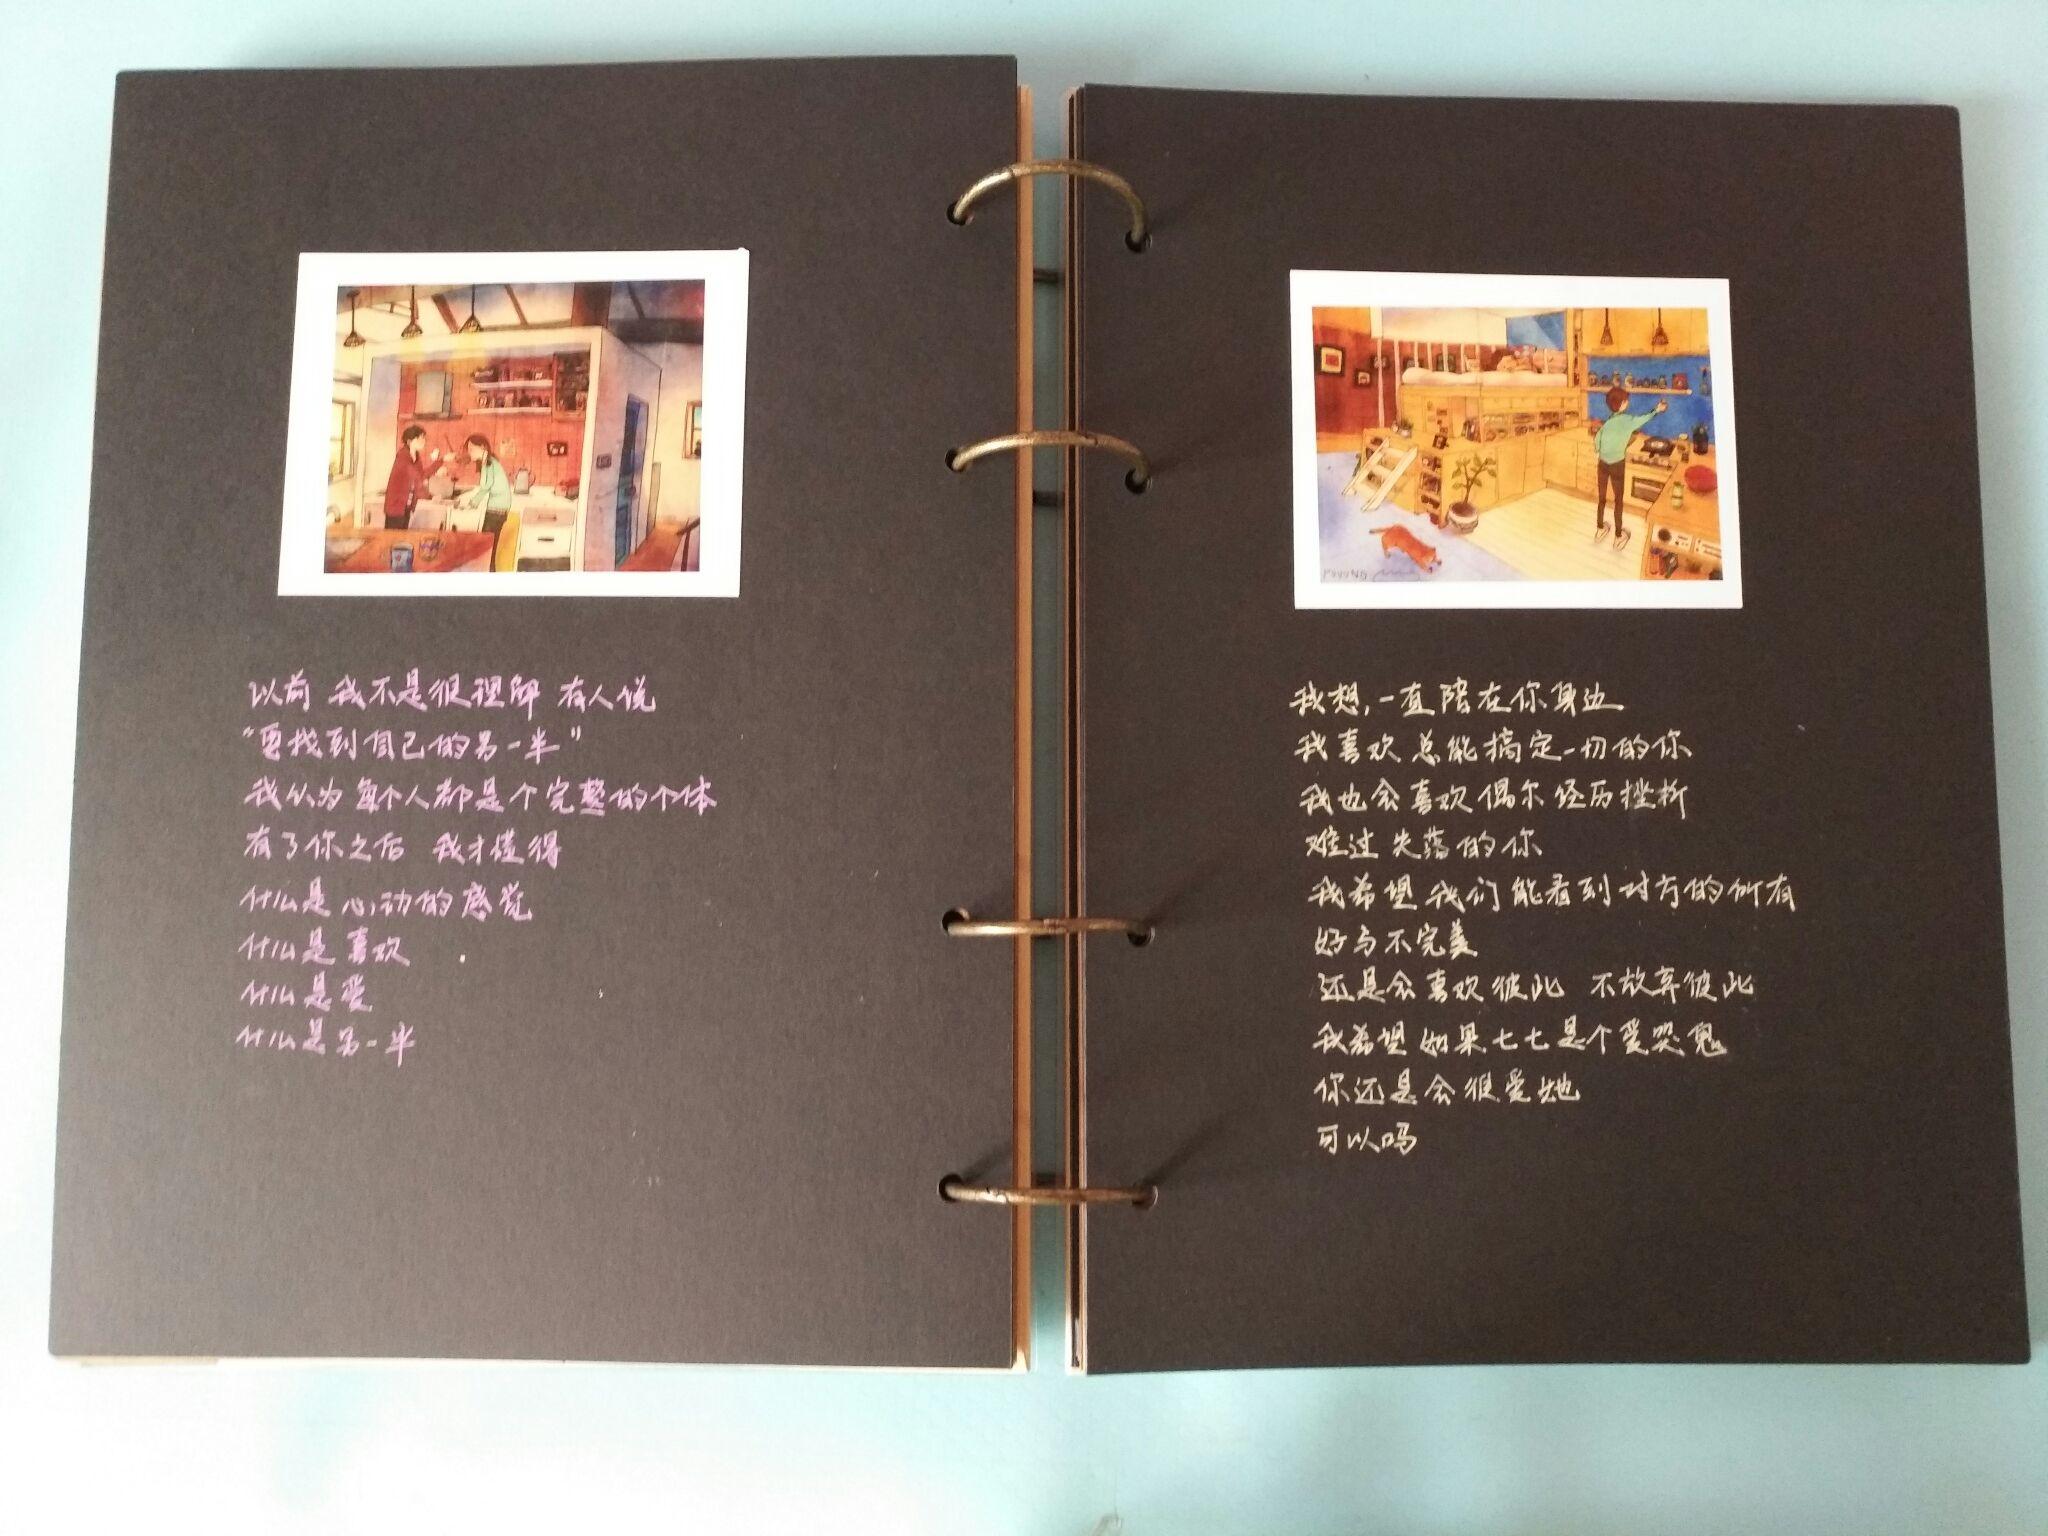 以前 我不是很理解 有人说
“要找到自己的另一半”
我认为每个人都是个完整的个体
有了你之后 我才懂得
什么是心动的感觉
什么是喜欢
什么是爱
什么是另一半
PUUUNG
我想,一直陪在你身边
我喜欢总能搞定一切的你
我也会喜欢偶尔经历挫折
难过失落的你
我希望我们能看到对方的所有
好与不完美
还是会喜欢彼此 不放弃彼此
我希望如果七七是个爱哭鬼
你还是会很爱她
可以吗